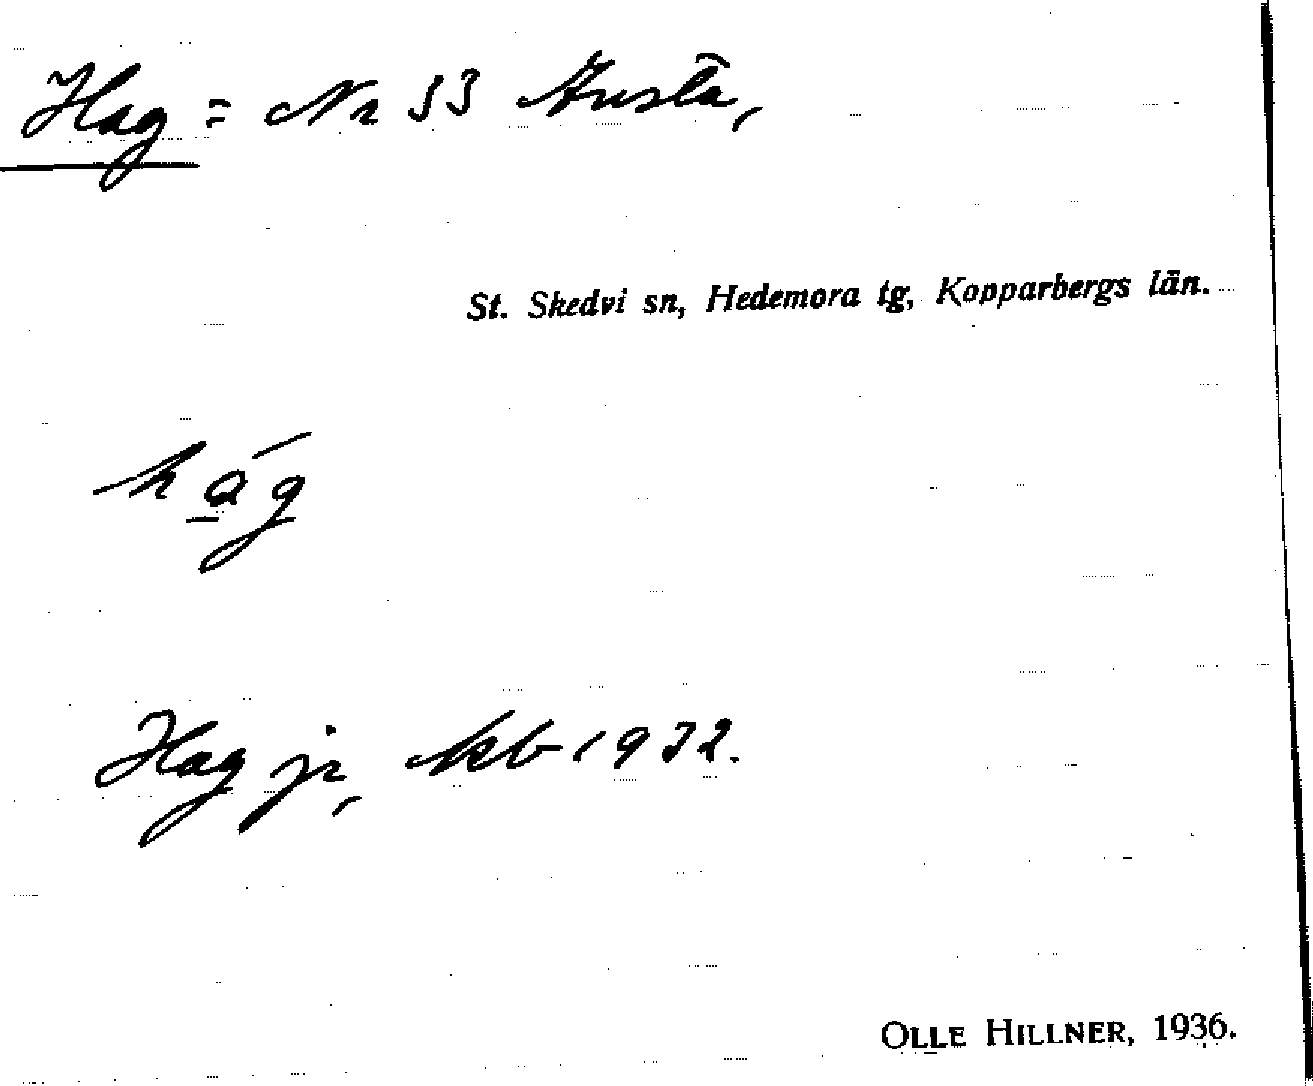 Hag = Nr 33
St. Skedvi sn, Hedemora tg, Kopparbergs län.
há̲g
Hag jr, kb 1932.
OLLE HILLNER, 1936.